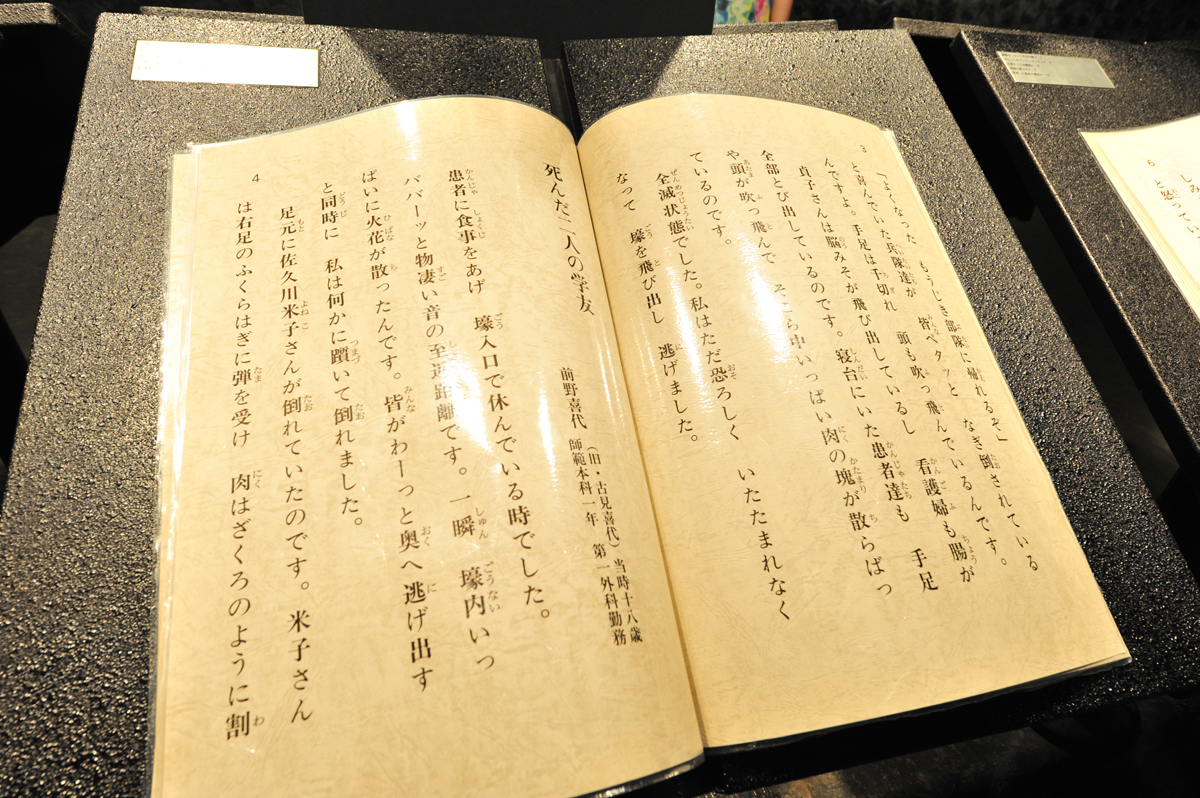 3
「よくなった もうじき部隊に帰れるぞ」
と喜んでいた兵隊達が 皆ペタッと なぎ倒されている
んですよ。手足は千切れ 頭も吹っ飛んでいるんです。
貞子さんは脳みそが飛び出しているし 看護婦も腸が
全部とび出しているのです。寝台にいた患者達も 手足
や頭が吹っ飛んで そこら中いっぱい肉の塊が散らばっ
ているのです。
全滅状態でした。私はただ恐ろしく いたたまれなく
なって 壕を飛び出し 逃げました。
死んだ二人の学友
前野喜代 (旧・古見喜代)当時十八歳
師範本科一年 第一外科勤務
患者に食事をあげ 壕入口で休んでいる時でした。
ババーッと物凄い音の至近距離です。一瞬 壕内いっ
ぱいに火花が散ったんです。皆がわーっと奥へ逃げ出す
と同時に 私は何かに躓いて倒れました。
足元に佐久川米子さんが倒れていたのです。米子さん
は右足のふくらはぎに弾を受け 肉はざくろのように割
4
6
しみ
と怒ってい